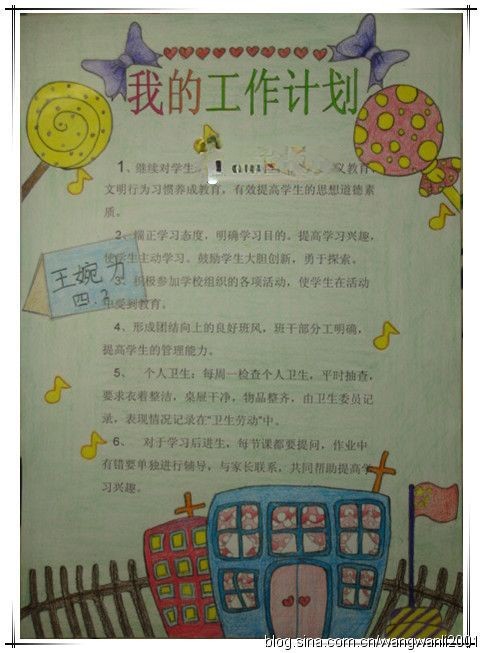 我的工作计划
1、继续对学生
义教育
文明行为习惯养成教育，有效提高学生的思想道德素
质。
2、端正学习态度，明确学习目的。提高学习兴趣，
使学生主动学习。鼓励学生大胆创新，勇于探索。
3、积极参加学校组织的各项活动，使学生在活动
中受到教育。
王婉
四.2
4、形成团结向上的良好班风，班干部分工明确，
提高学生的管理能力。
5、 个人卫生：每周一检查个人卫生，平时抽查，
要求衣着整洁，桌屉干净，物品整齐，由卫生委员记
录，表现情况记录在“卫生劳动”中。
6、 对于学习后进生，每节课都要提问，作业中
有错要单独进行辅导，与家长联系，共同帮助提高学
习兴趣。
blog.sina.com.cn/wangwanli2001